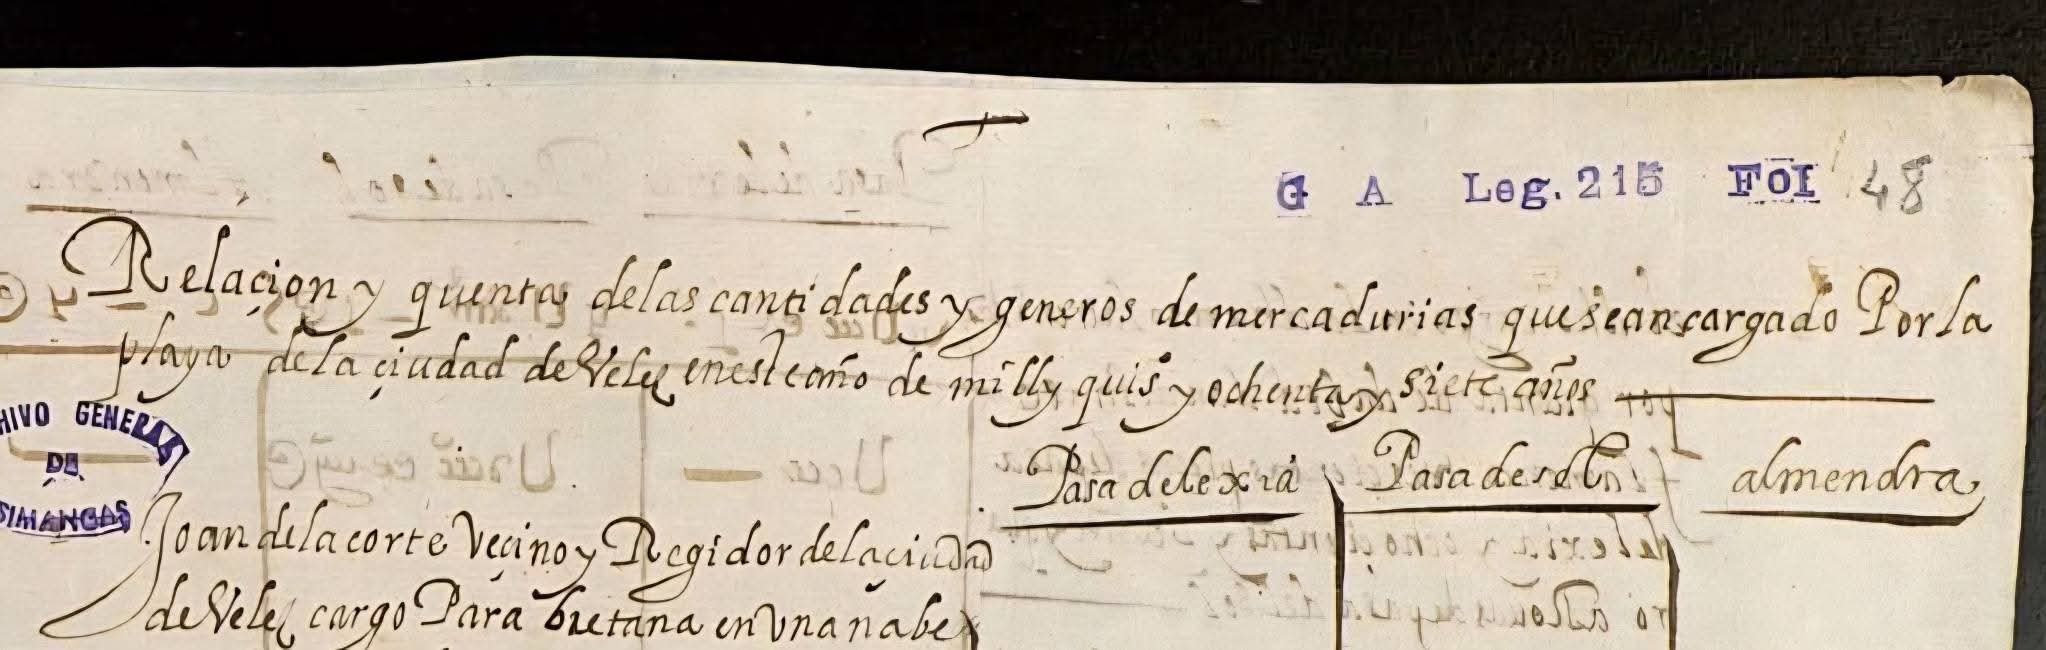 G A Leg. 215 FOL 48
Relaçion y quenta de las cantidades y generos de mercadurias que sean cargado Por la
playa de la çiudad de Velez en este año de mill y quis y ochenta y siete años
Pasa de lexia Pasa de sol almendra
ARCHIVO GENERAL
DE
SIMANCAS
Joan de la corte Veçino y Regidor de la ciudad
de Velez cargo Para bretana en Vna nabe